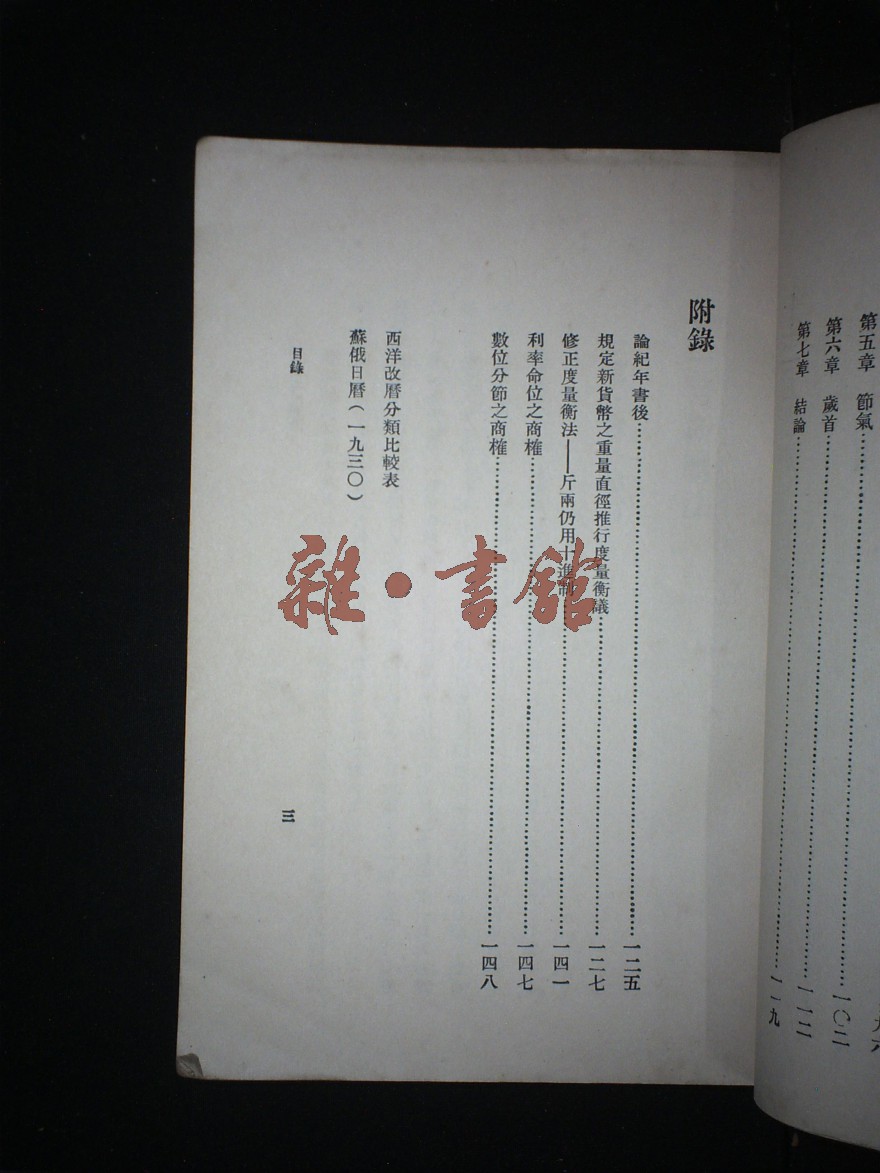 第五章 節氣……一〇二
第六章 歲首……一一二
第七章 結論……一一九
附錄
論紀年書後……一二五
規定新貨幣之重量直徑推行度量衡議……一二七
修正度量衡法——斤兩仍用十進制……一四一
利率命位之商榷……一四七
數位分節之商榷……一四八
西洋改曆分類比較表
蘇俄日曆（一九三〇）
目錄
三
雜·書館